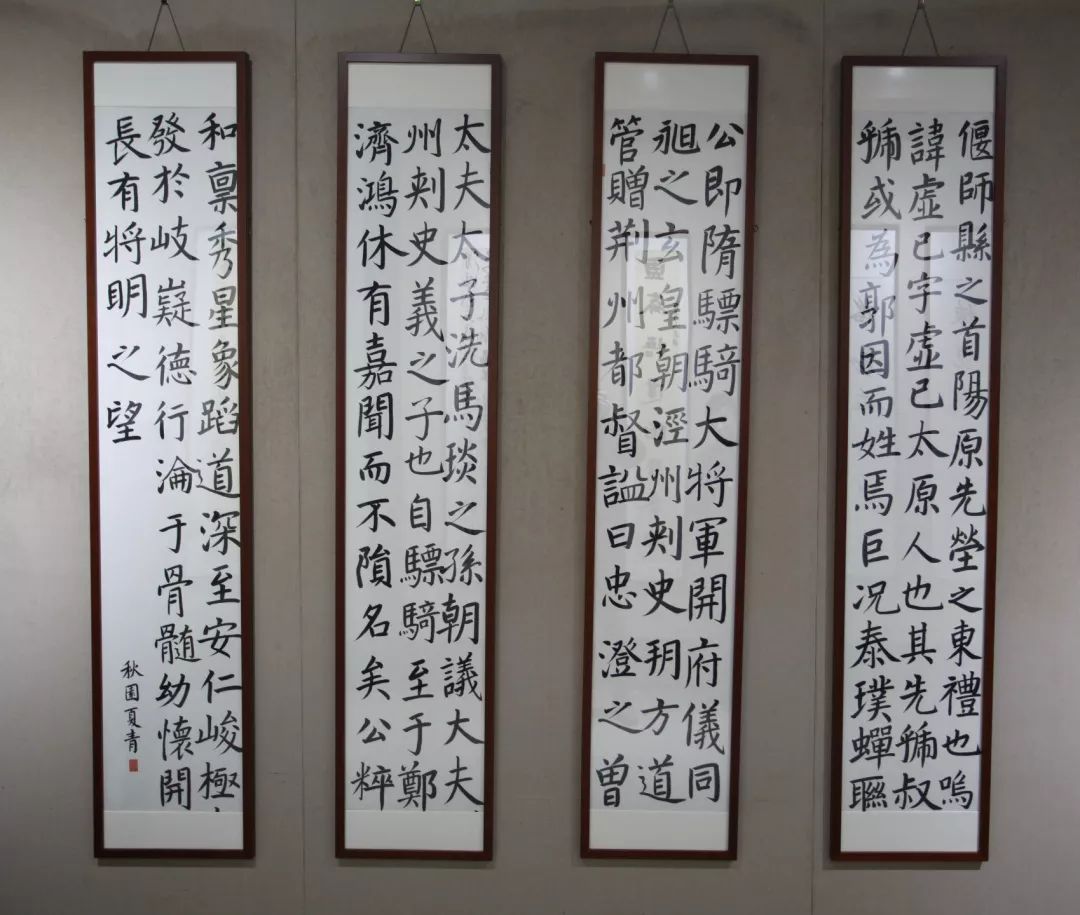 偃師縣之首陽原先塋之東禮也嗚
諱虛己字虛己太原人也其先虢叔
虢或為郭因而姓焉巨况泰璞蟬聯
公即隋驃騎大将軍開府儀同
昶之玄皇朝涇州刾史玥方道
管贈荆州都督謚曰忠澄之曾
太夫太子洗馬琰之孫朝議大夫
州刾史義之子也自驃騎至于鄭
濟鴻休有嘉聞而不隕名矣公粹
和禀秀星象蹈道深至安仁峻極
發於岐嶷德行淪于骨髓幼懷開
長有将明之望
秋園夏青